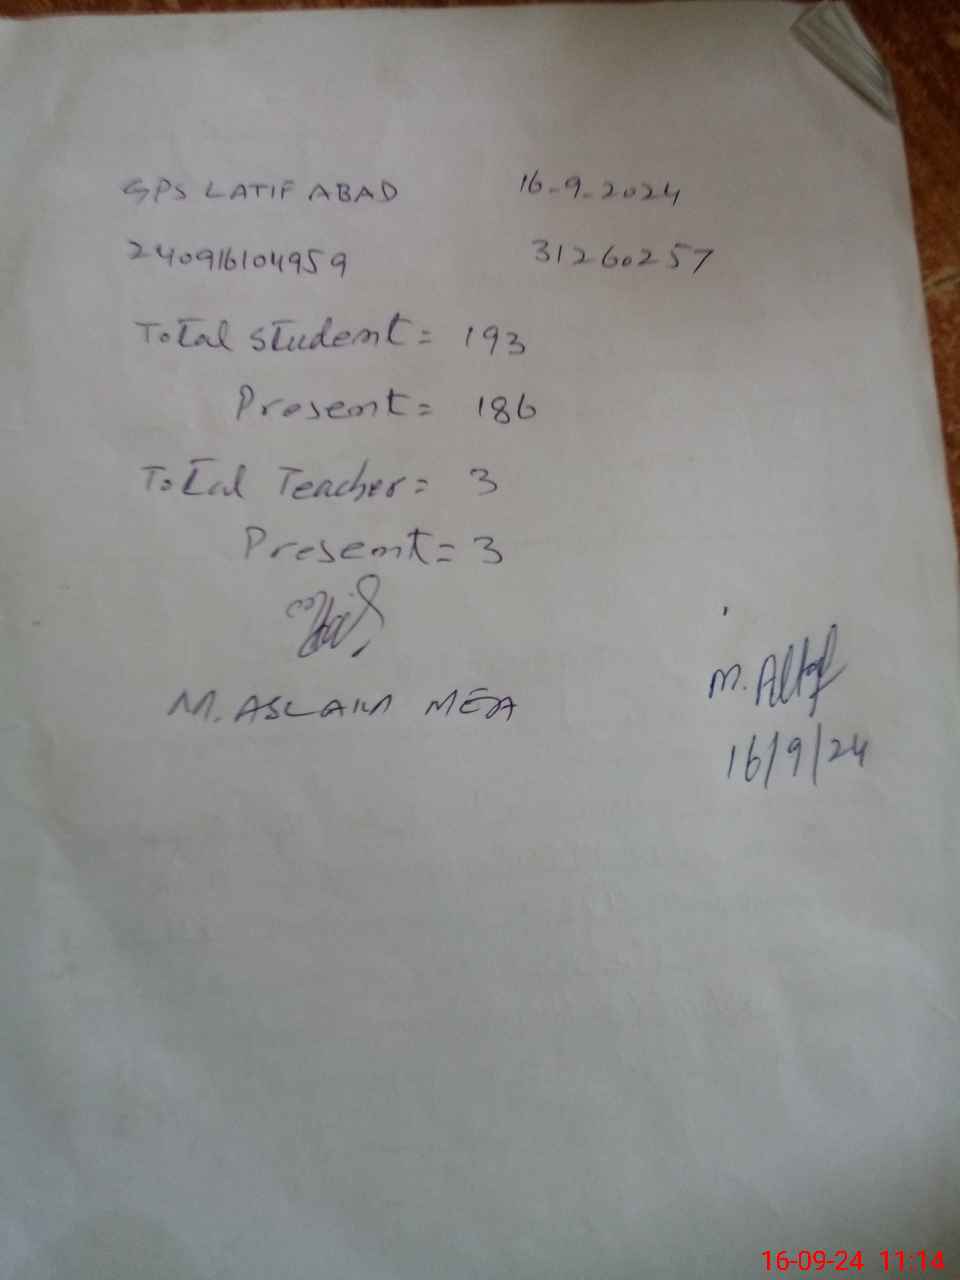 GPS LATIF ABAD 16-9-2024
240916104959 31260257
Total student = 193
Present = 186
Total Teacher = 3
Present = 3
M. ASLAM MEA
M. Altaf
16/9/24
16-09-24 11:14